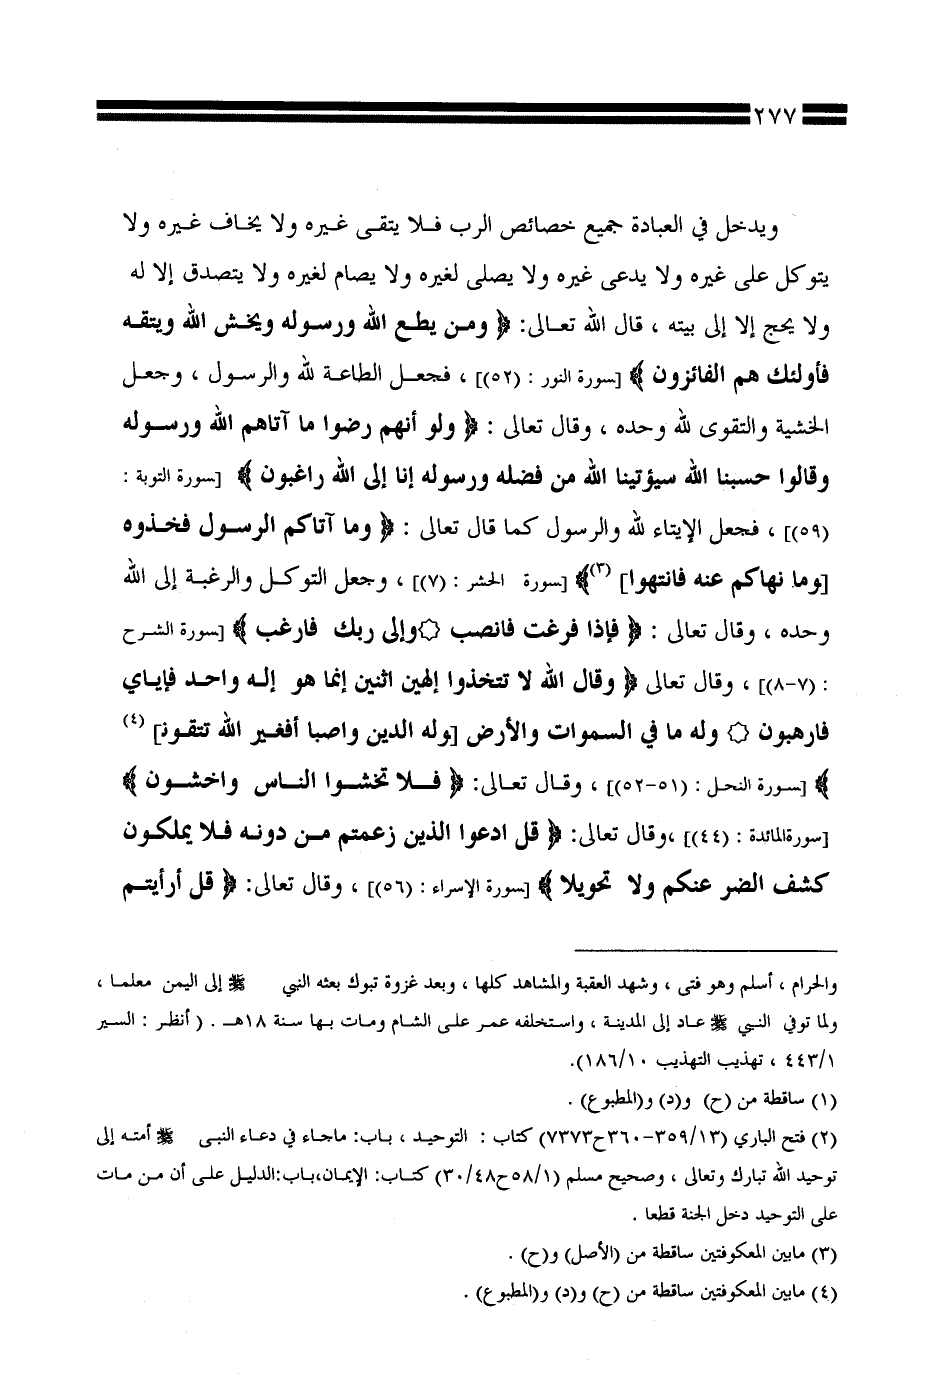 ٢٧٧
ويدخل في العبادة جميع خصائص الرب فلا يتقى غيره ولا يخاف غيره ولا
يتوكل على غيره ولا يدعى غيره ولا يصلى لغيره ولا يصام لغيره ولا يتصدق إلا له
ولا يحج إلا إلى بيته ، قال الله تعالى: ﴿ ومن يطع الله ورسوله ويخش الله ويتقه
فأولئك هم الفائزون ﴾ [سورة النور : (٥٢)] ، فجعل الطاعة لله والرسول ، وجعل
الخشية والتقوى لله وحده ، وقال تعالى : ﴿ ولو أنهم رضوا ما آتاهم الله ورسوله
وقالوا حسبنا الله سيؤتينا الله من فضله ورسوله إنا إلى الله راغبون ﴾ [سورة التوبة :
(٥٩)] ، فجعل الإيتاء لله والرسول كما قال تعالى : ﴿ وما آتاكم الرسول فخذوه
[وما نهاكم عنه فانتهوا] (٣)﴾ [سورة الحشر : (٧)] ، وجعل التوكل والرغبة إلى الله
وحده ، وقال تعالى : ﴿ فإذا فرغت فانصب ۞وإلى ربك فارغب ﴾ [سورة الشرح
: (٧-٨)] ، وقال تعالى ﴿ وقال الله لا تتخذوا إلهين اثنين إنما هو إله واحد فإياي
فارهبون ۞ وله ما في السموات والأرض [وله الدين واصبا أفغير الله تتقون] (٤)
﴾ [سورة النحل : (٥١-٥٢)] ، وقال تعالى: ﴿ فلا تخشوا الناس واخشون ﴾
[سورةالمائدة : (٤٤)] ،وقال تعالى: ﴿ قل ادعوا الذين زعمتم من دونه فلا يملكون
كشف الضر عنكم ولا تحويلا ﴾ [سورة الإسراء : (٥٦)] ، وقال تعالى: ﴿ قل أرأيتم
والحرام ، أسلم وهو فتى ، وشهد العقبة والمشاهد كلها ، وبعد غزوة تبوك بعثه النبي ﷺ إلى اليمن معلما ،
ولما توفي النبي ﷺ عاد إلى المدينة ، واستخلفه عمر على الشام ومات بها سنة ١٨هـ . ( أنظر : السير
٤٤٣/١ ، تهذيب التهذيب ١٨٦/١٠).
(١) ساقطة من (ح) و(د) و(المطبوع) .
(٢) فتح الباري (٣٥٩/١٣-٣٦٠ح٧٣٧٣) كتاب : التوحيد ، باب: ماجاء في دعاء النبي ﷺ أمته إلى
توحيد الله تبارك وتعالى ، وصحيح مسلم (٥٨/١ح٣٠/٤٨) كتاب: الإيمان،باب:الدليل على أن من مات
على التوحيد دخل الجنة قطعا .
(٣) مابين المعكوفتين ساقطة من (الأصل) و(ح) .
(٤) مابين المعكوفتين ساقطة من (ح) و(د) و(المطبوع) .